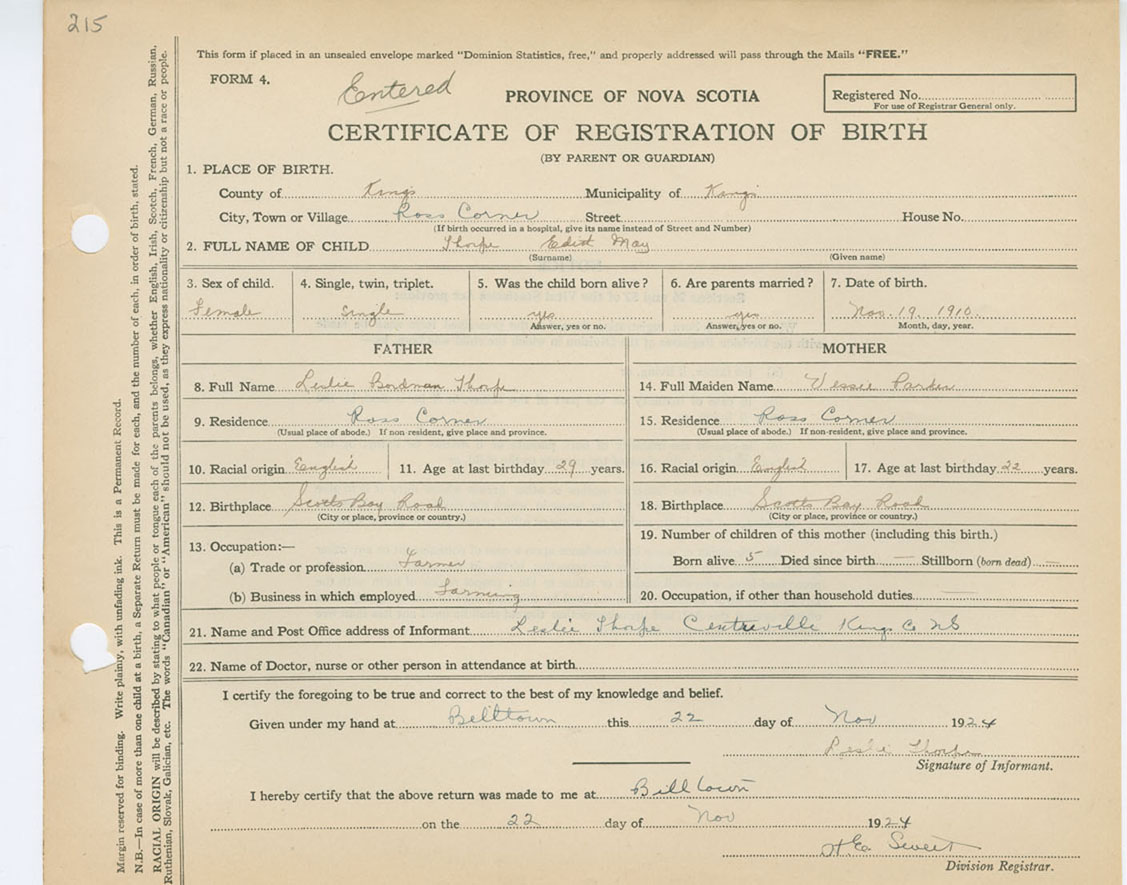 215
This form if placed in an unsealed envelope marked "Dominion Statistics, free," and properly addressed will pass through the Mails "FREE."
FORM 4.
Entered
PROVINCE OF NOVA SCOTIA
Registered No.
For use of Registrar General only.
CERTIFICATE OF REGISTRATION OF BIRTH
(BY PARENT OR GUARDIAN)
1. PLACE OF BIRTH.
County of Kings Municipality of Kings
City, Town or Village Ross Corner Street House No.
(If birth occurred in a hospital, give its name instead of Street and Number)
2. FULL NAME OF CHILD Thorpe Edith May
(Surname) (Given name)
3. Sex of child. 4. Single, twin, triplet. 5. Was the child born alive? 6. Are parents married? 7. Date of birth.
Female Single yes yes Nov. 19. 1910.
Answer, yes or no. Answer, yes or no. Month, day, year.
FATHER MOTHER
8. Full Name Leslie Bordman Thorpe 14. Full Maiden Name Vessie Parker
9. Residence Ross Corner 15. Residence Ross Corner
(Usual place of abode.) If non-resident, give place and province. (Usual place of abode.) If non-resident, give place and province.
10. Racial origin English 11. Age at last birthday 29 years. 16. Racial origin English 17. Age at last birthday 22 years.
12. Birthplace Scotts Bay Road 18. Birthplace Scotts Bay Road
(City or place, province or country.) (City or place, province or country.)
13. Occupation:— 19. Number of children of this mother (including this birth.)
(a) Trade or profession Farmer Born alive 5 Died since birth — Stillborn (born dead) —
(b) Business in which employed Farming 20. Occupation, if other than household duties —
21. Name and Post Office address of Informant Leslie Thorpe Centreville Kings Co NS
22. Name of Doctor, nurse or other person in attendance at birth
I certify the foregoing to be true and correct to the best of my knowledge and belief.
Given under my hand at Billtown this 22 day of Nov 1924
Leslie Thorpe
Signature of Informant.
I hereby certify that the above return was made to me at Billtown
on the 22 day of Nov 1924
Sweet
Division Registrar.
Margin reserved for binding. Write plainly, with unfading ink. This is a Permanent Record.
N.B.—In case of more than one child at a birth, a Separate Return must be made for each, and the number of each, in order of birth, stated.
RACIAL ORIGIN will be described by stating to what people or tongue each of the parents belongs, whether English, Irish, Scotch, French, German, Russian,
Ruthenian, Slovak, Galician, etc. The words "Canadian" or "American" should not be used, as they express nationality or citizenship but not a race or people.